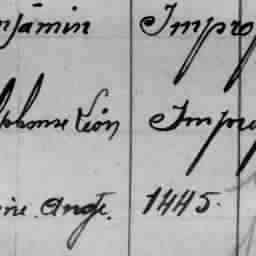 njamin Improp
lphonse Léon Improp
ine. Ange. 1445.